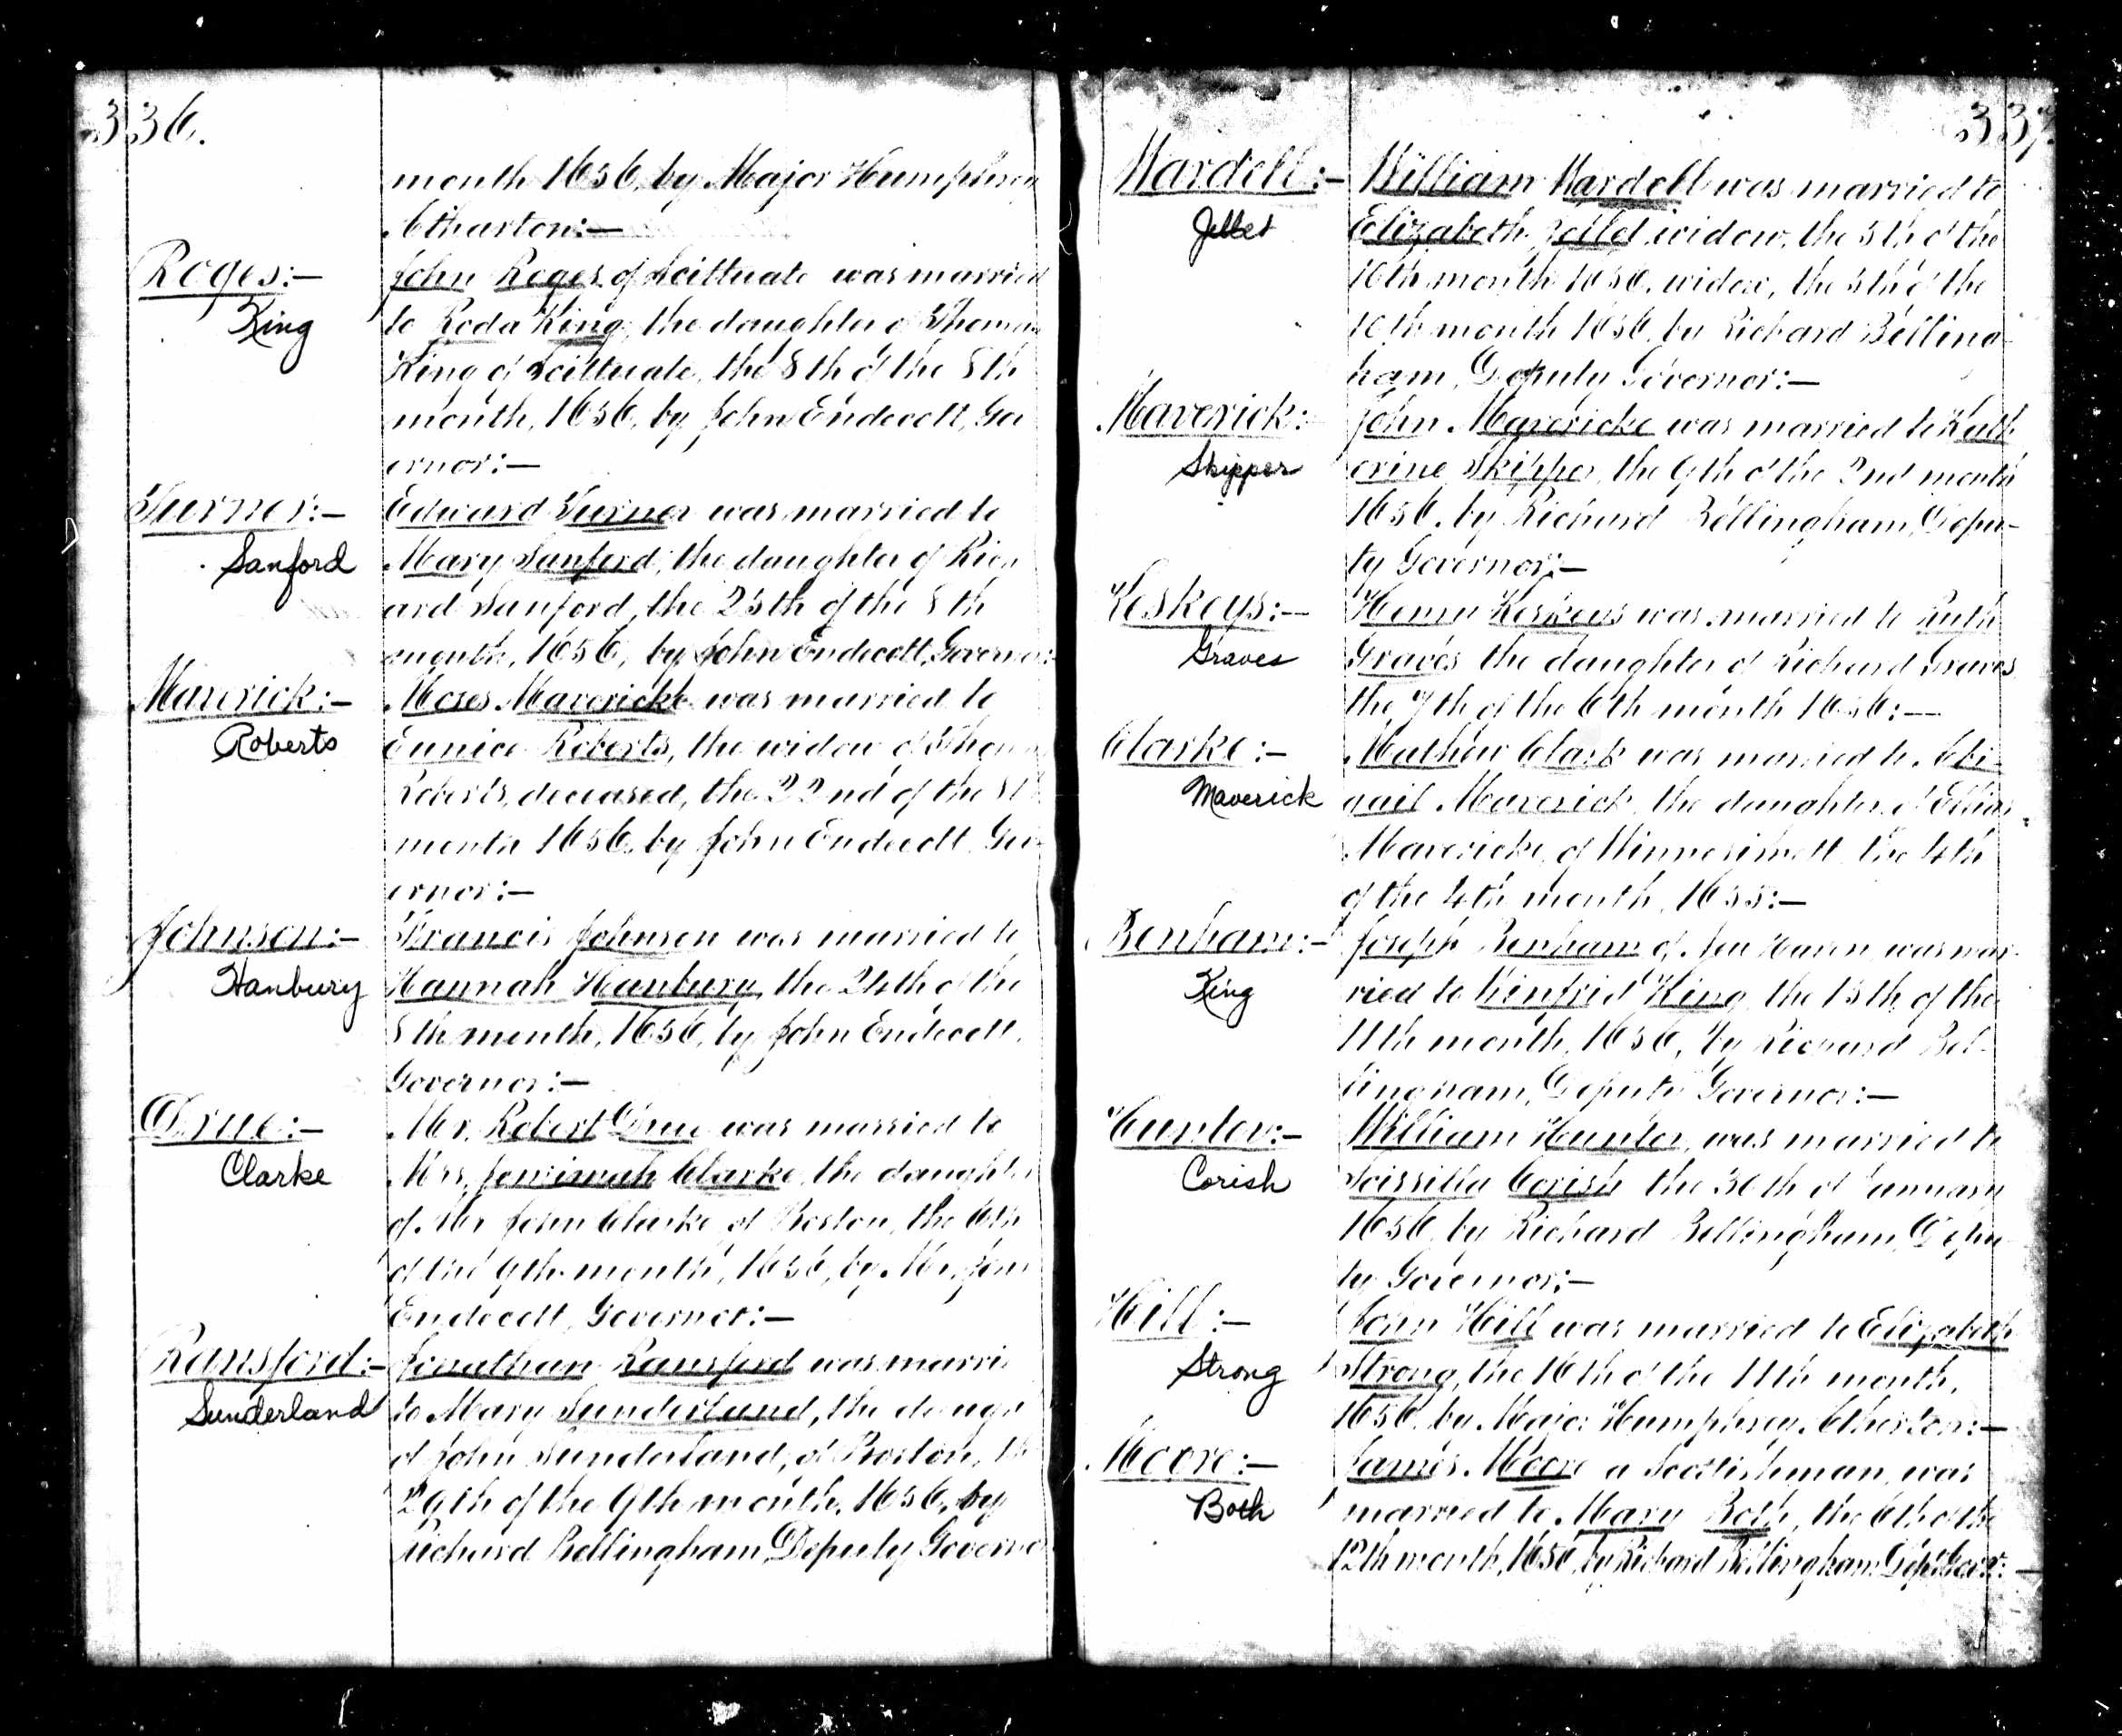 336.
month 1656, by Major Humphrey
Atharton:—
Roges:—
King
John Roges of Scittuate was married
to Roda King, the daughter of Thomas
King of Scittuate, the 8th of the 8th
month, 1656, by John Endecott, Gov
ernor:—
Turner:—
Sanford
Edward Turner was married to
Mary Sanford, the daughter of Rich
ard Sanford, the 25th of the 8th
month, 1656, by John Endecott, Governor:
Maverick:—
Roberts
Moses Maverick was married to
Eunice Roberts, the widow of Thomas
Roberts, deceased, the 22nd of the 8th
month 1656, by John Endecott Gov
ernor:—
Johnson:—
Hanbury
Francis Johnson was married to
Hannah Hanbury, the 24th of the
8th month, 1656, by John Endecott,
Governor:—
Drue:—
Clarke
Mr. Robert Drue was married to
Mrs. Jemimah Clarke, the daughter
of Mr John Clarke of Boston, the 6th
of the 9th month, 1656, by Mr. John
Endecott, Governor:—
Ransford:—
Sunderland
Jonathan Ransford was marri
to Mary Sunderland, the daugh
of John Sunderland, of Boston, th
29th of the 9th month, 1656, by
Richard Bellingham, Deputy Governor
337.
Wardell:—
Jellet
William Wardell was married to
Elizabeth Jellet widow, the 5th of the
10th month 1656. widow, the 5th of the
10th month 1656, by Richard Belling-
ham, Deputy Governor:—
Maverick:
Skipper
John Mavericke was married to Kath
erine Skipper, the 9th of the 2nd month
1656, by Richard Bellingham, Depu-
ty Governor:—
Keskeys:—
Graves
Henry Keskeys was married to Ruth
Graves the daughter of Richard Graves
the 7th of the 6th month 1656:—
Clarke:—
Maverick
Mathew Clark was married to Abi-
gail Maverick, the daughter of Elias
Mavericke, of the 4th
of the 4th month, 1655:—
Benham:—
King
Joseph Benham of New Haven was mar-
ried to Winfrid King, the 15th of the
11th month, 1656, by Richard Bel-
lingham, Deputy Governor:—
Hunter:—
Corish
William Hunter, was married to
Scissilla Corish the 30th of January
1656, by Richard Bellingham, Depu
ty Governor:—
Hill:—
Strong
John Hill was married to Elizabeth
Strong, the 16th of the 11th month,
1656 by Major Humphrey Atherton:—
Moore:—
Both
James Moore a Scottishman, was
married to Mary Both, the 6th of the
12th month, 1656, by Richard Bellingham